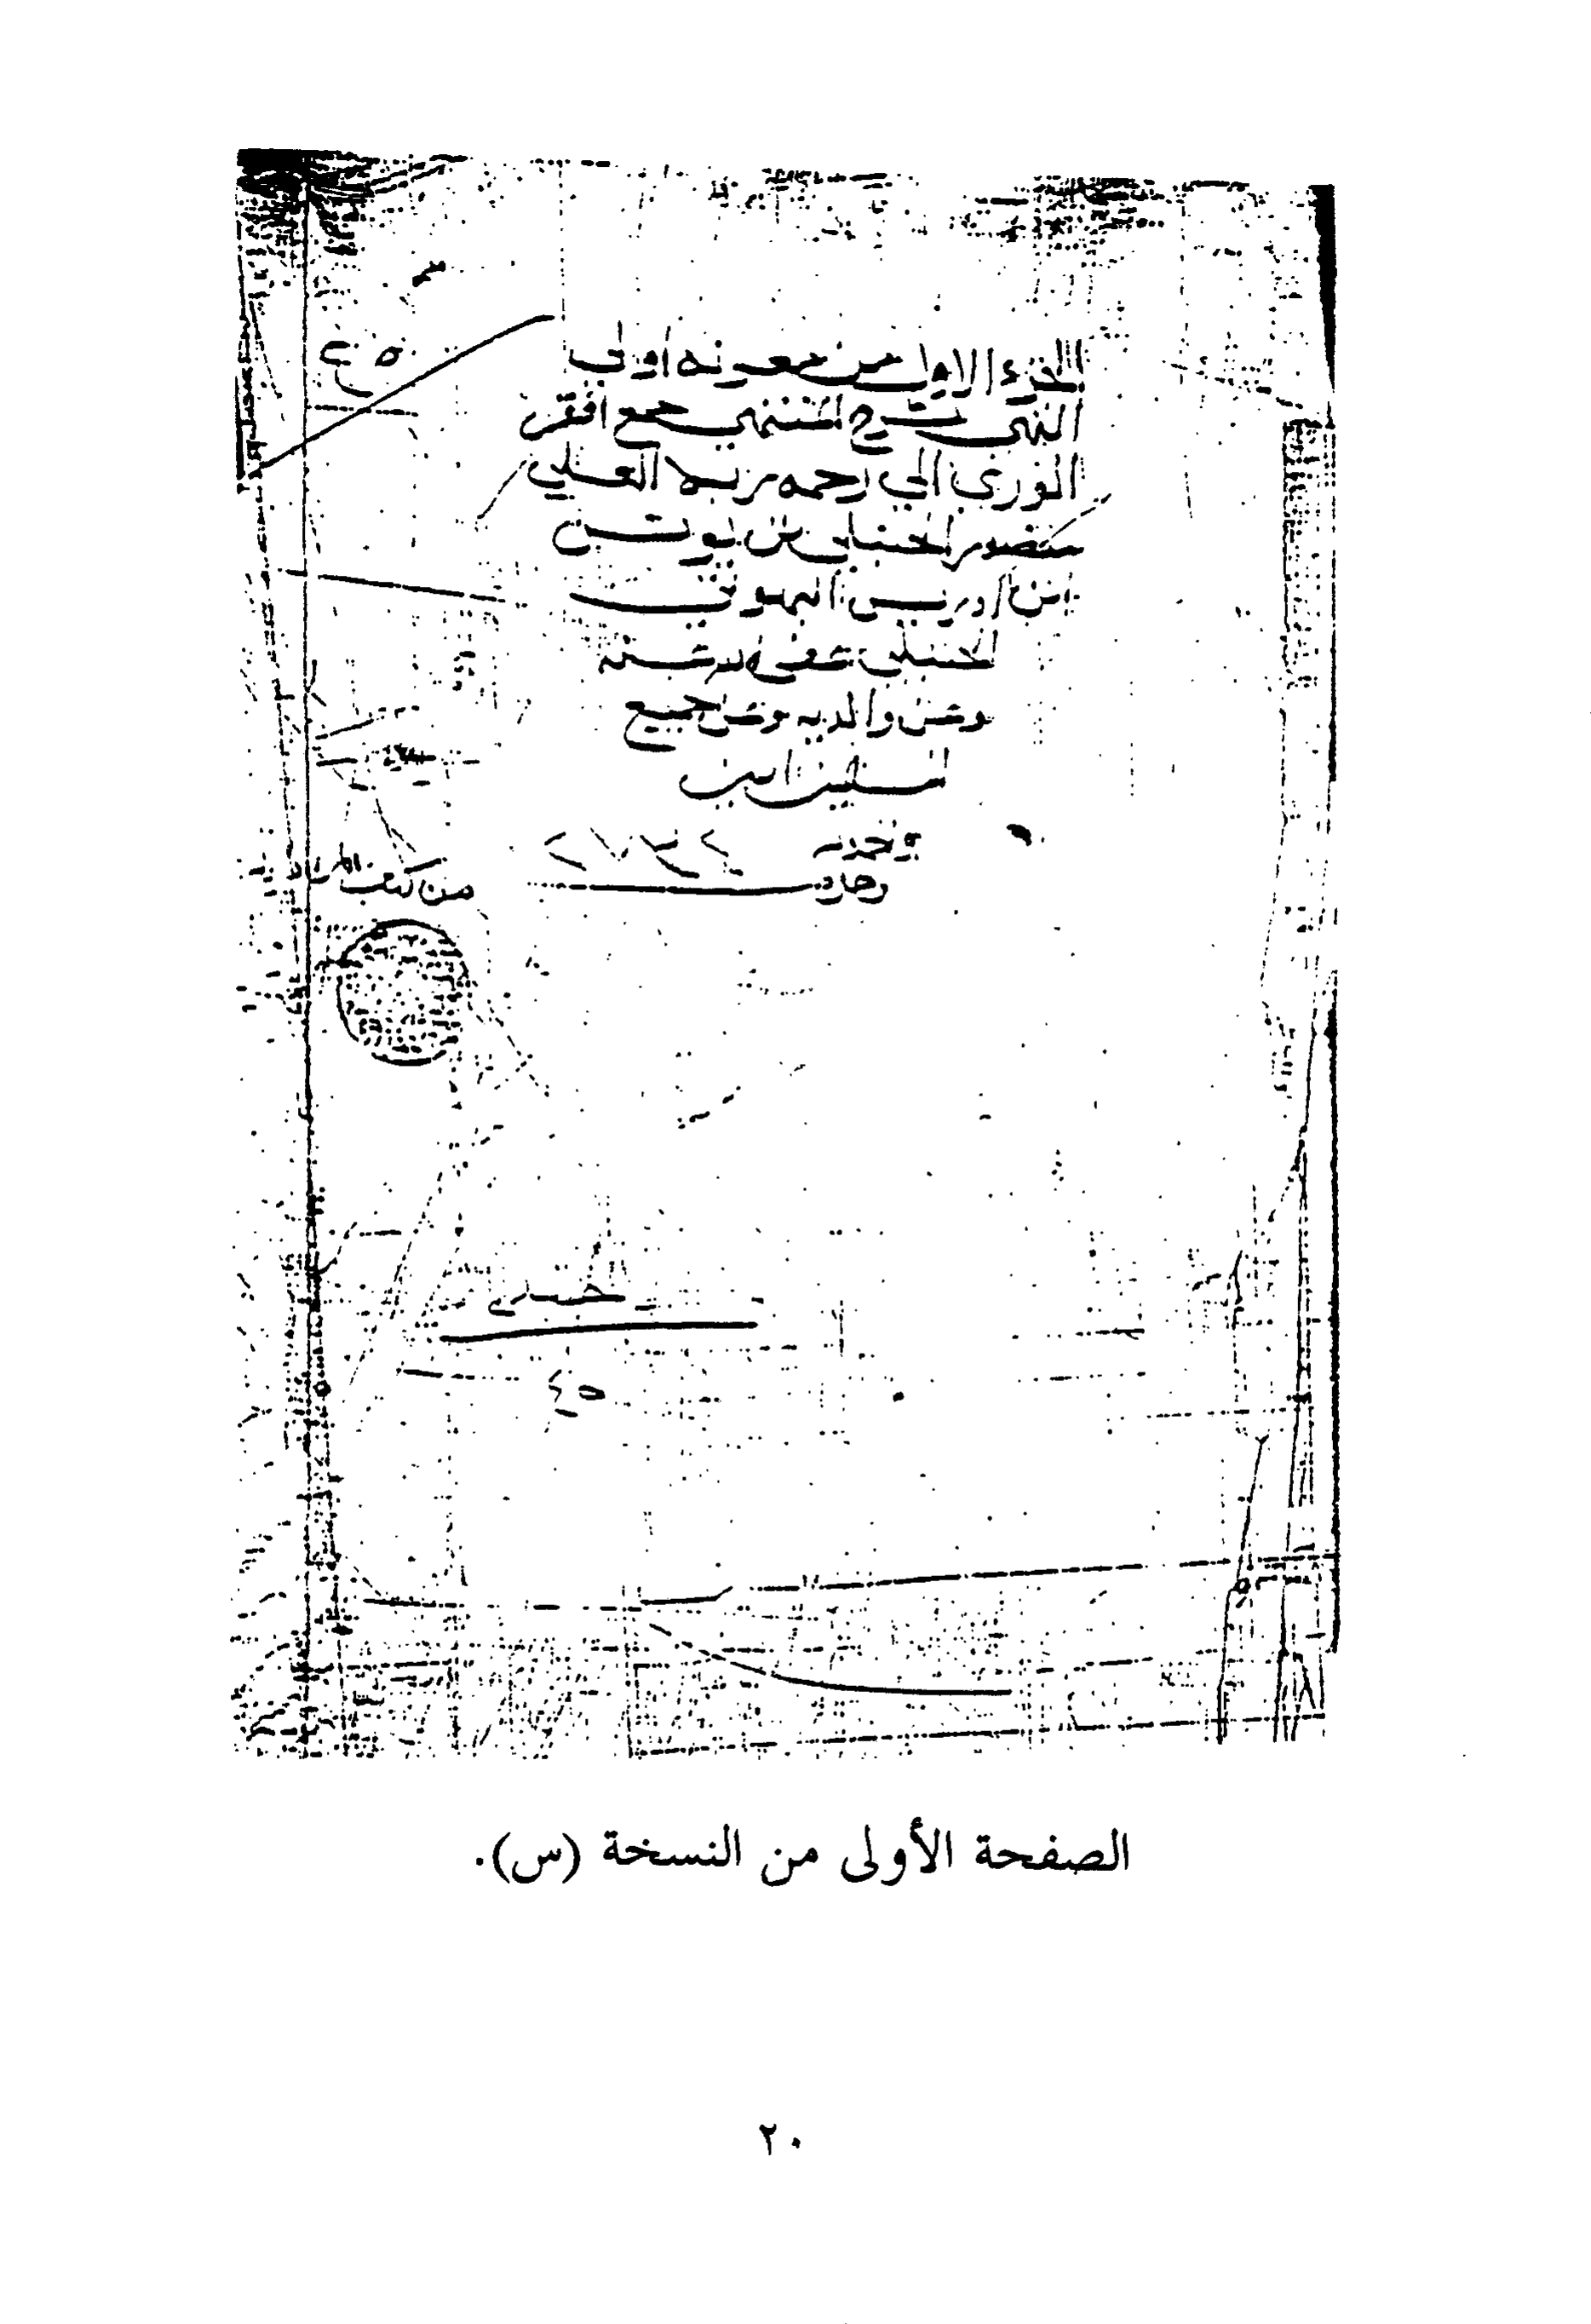 الجزء الاول من معونة اولي
النهى شرح المنتهى جمع افقر
الورى الى رحمة ربه العلي
منصور الحنبلي بن يونس
ابن ادريس البهوتي
الحنبلي عفى الله عنه
وعن والديه وعن جميع
المسلمين امين
٢٧٣٢
من كتب
حنبلي
٤٥
الصفحة الأولى من النسخة (س).
٢٠